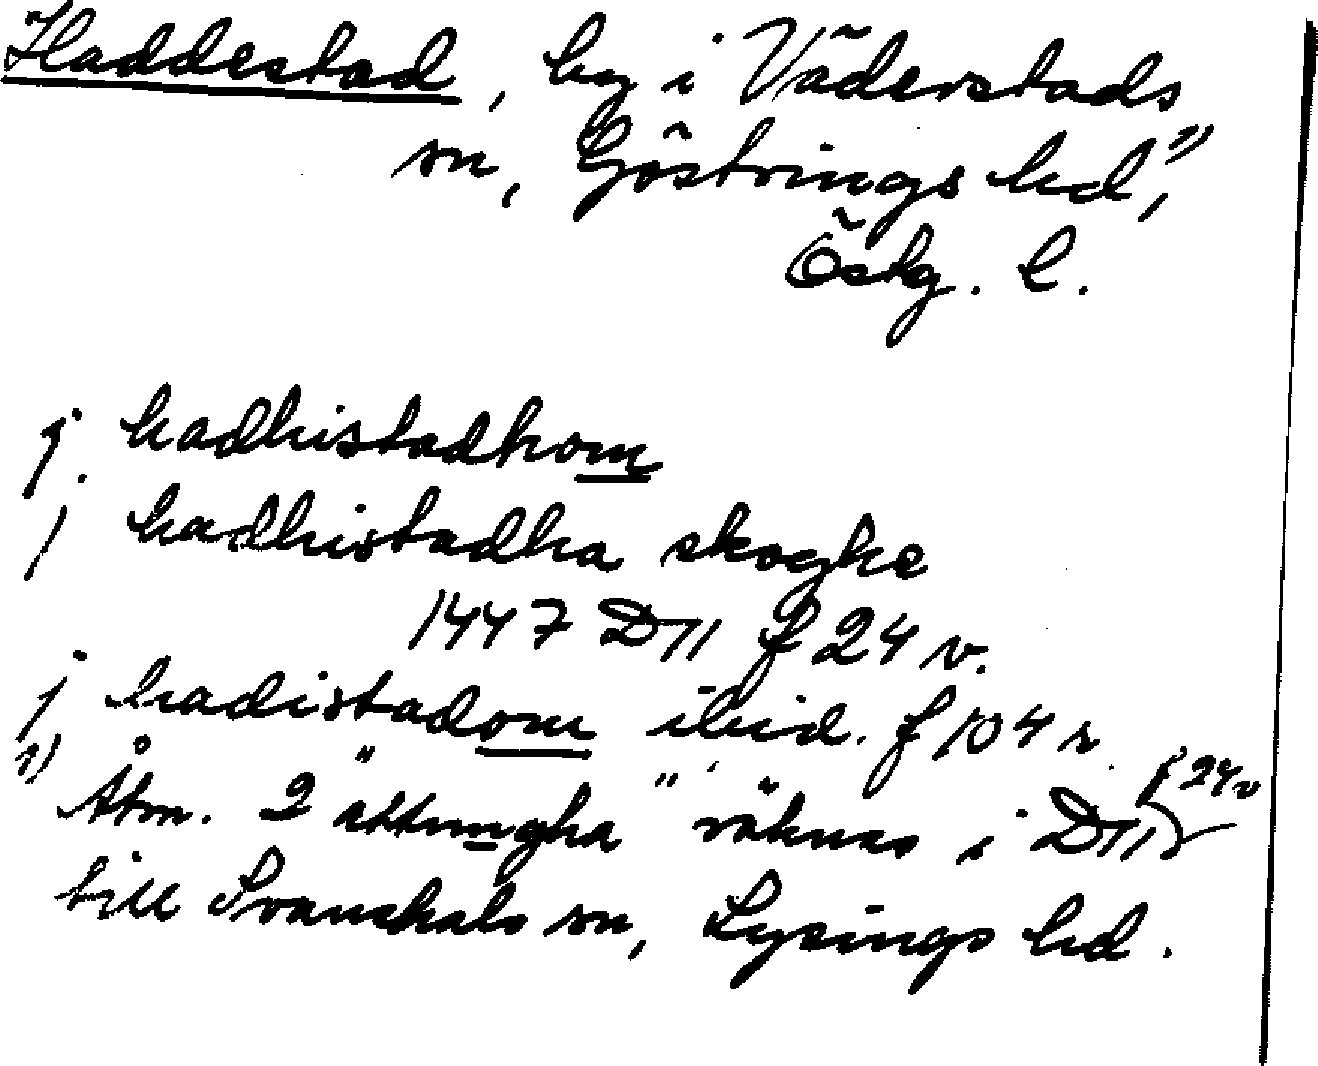 Haddestad, by i Väderstads
sn, Göstrings hd,¹⁾
Östg. l.
j. hadhistadhom
j hadhistadha skoghe
1447 D11 f 24 v.
j hadistadom ibid. f 104 r.
¹⁾ Åtm. 2 "attungha" räknas i D11 f 24 v
till Svanshals sn, Lysings hd.